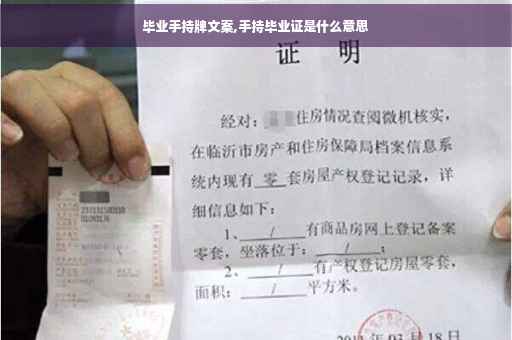 毕业手持牌文案,手持毕业证是什么意思
证 明
经对: 住房情况查阅微机核实,
在临沂市房产和住房保障局档案信息系
统内现有 零 套房屋产权登记记录,详
细信息如下:
1、 / 有商品房网上登记备案
零套,坐落位于: / ;
2、 / 有产权登记房屋零套,
面积: / 平方米。